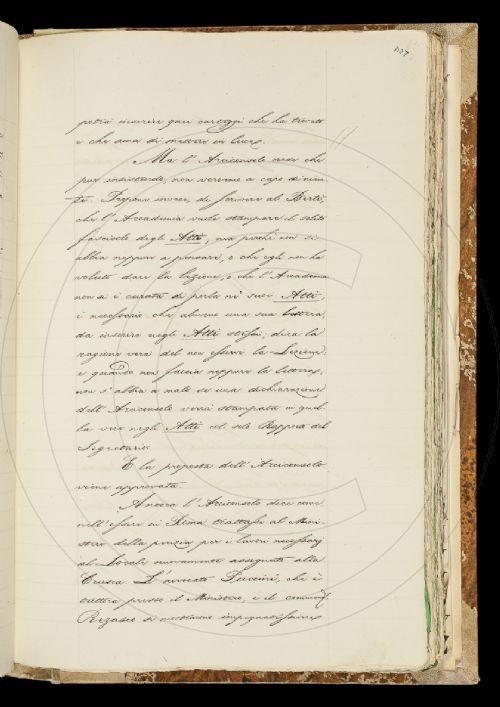 127
potrà inserire quei carteggi che ha trovato
e che ama di mettere in luce.
Ma l'Arciconsolo crede che
pur insistendo, non verremo a capo di nien-
te. Propone invece, di scrivere al Berti,
che l'Accademia vuole stampare il solito
fascicolo degli Atti, ma perchè non si
abbia neppur a pensare, o che egli non ha
voluto dare la lezione, o che l'Accademia
non si è curata di porla ne' suoi Atti,
è necessario che almeno una sua lettera,
da inserire negli Atti stessi, dica la
ragione vera del non esservi la Lezione.
e quando non faccia neppure la lettera,
non s'abbia a male se una dichiarazione
dell'Arciconsolo verrà stampata in quel-
la vece negli Atti col solo Rapporto del
Segretario.
E la proposta dell'Arciconsolo
viene approvata.
Ancora l'Arciconsolo dice come
nell'essere in Roma trattasse al Mini-
stero della per i lavori necessarj
al Locale nuovamente assegnato alla
Crusca. L'avvocato Puccini, che è
tuttora presso il Ministero, e il comm.
Rezasco si mostrarono impegnatissimi